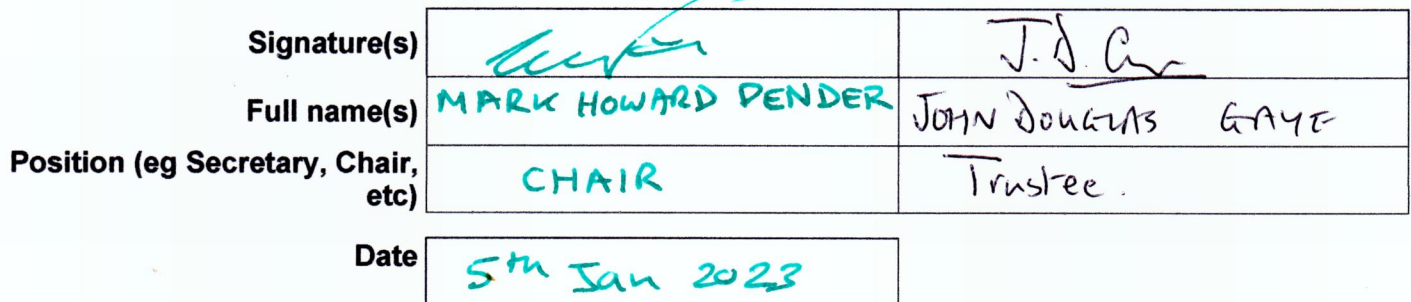 Signature(s) J.D. 
Full name(s) MARK HOWARD PENDER JOHN DOUGLAS GAYE
Position (eg Secretary, Chair, etc) CHAIR Trustee.
Date 5th Jan 2023